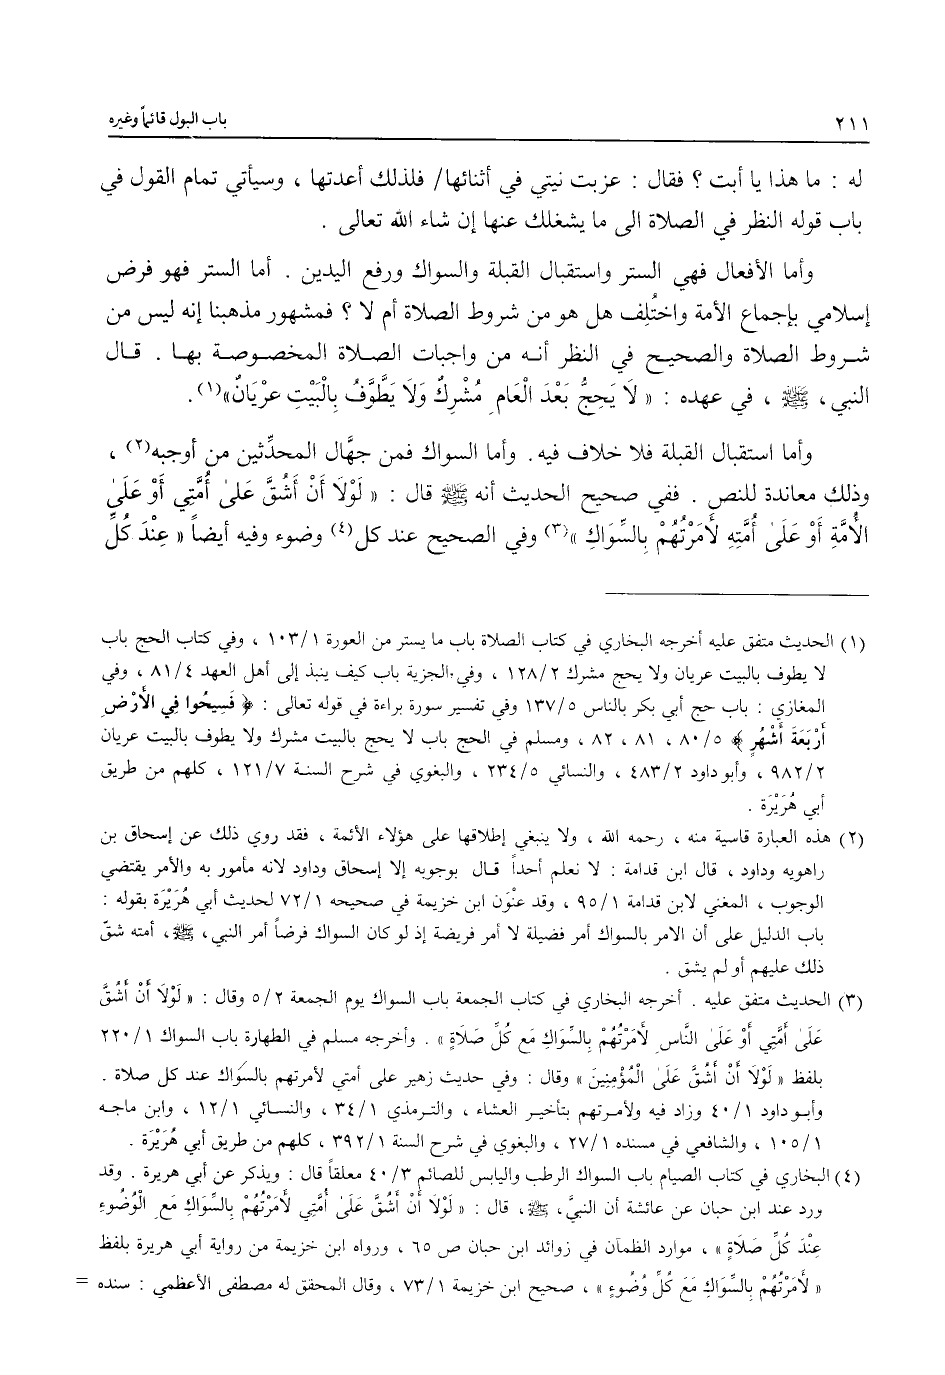 ٢١١ باب البول قائماً وغيره
له : ما هذا يا أبت ؟ فقال : عزبت نيتي في أثنائها/ فلذلك أعدتها ، وسيأتي تمام القول في
باب قوله النظر في الصلاة الى ما يشغلك عنها إن شاء الله تعالى .
وأما الأفعال فهي الستر واستقبال القبلة والسواك ورفع اليدين . أما الستر فهو فرض
إسلامي بإجماع الأمة واختُلِف هل هو من شروط الصلاة أم لا ؟ فمشهور مذهبنا إنه ليس من
شروط الصلاة والصحيح في النظر أنه من واجبات الصلاة المخصوصة بها . قال
النبي، ﷺ ، في عهده : « لَا يَحِجُّ بَعْدَ الْعَامِ مُشْرِكٌ وَلَا يَطَّوَّفُ بِالْبَيْتِ عرْيَانٌ»(١).
وأما استقبال القبلة فلا خلاف فيه. وأما السواك فمن جهَّال المحدِّثين من أوجبه(٢) ،
وذلك معاندة للنص . ففي صحيح الحديث أنه ﷺ قال : « لَوْلَا أَنْ أَشُقَّ عَلَىٰ أُمَّتِي أَوْ عَلَىٰ
الأُمَّةِ أَوْ عَلَىٰ أُمَّتِهِ لأَمَرْتُهُمْ بِالسِّوَاكِ »(٣) وفي الصحيح عند كل(٤) وضوء وفيه أيضاً « عِنْدَ كُلِّ
(١) الحديث متفق عليه أخرجه البخاري في كتاب الصلاة باب ما يستر من العورة ١٠٣/١ ، وفي كتاب الحج باب
لا يطوف بالبيت عريان ولا يحج مشرك ١٢٨/٢ ، وفي الجزية باب كيف ينبذ إلى أهل العهد ٨١/٤ ، وفي
المغازي : باب حج أبي بكر بالناس ١٣٧/٥ وفي تفسير سورة براءة في قوله تعالى : ﴿ فَسِيحُوا فِي الأَرْضِ
أَرْبَعَةَ أَشْهُرٍ ﴾ ٨٠/٥ ، ٨١ ، ٨٢ ، ومسلم في الحج باب لا يحج بالبيت مشرك ولا يطوف بالبيت عريان
٩٨٢/٢ ، وأبو داود ٤٨٣/٢ ، والنسائي ٢٣٤/٥ ، والبغوي في شرح السنة ١٢١/٧ ، كلهم من طريق
أبي هُرَيْرَة .
(٢) هذه العبارة قاسية منه ، رحمه الله ، ولا ينبغي إطلاقها على هؤلاء الأئمة ، فقد روي ذلك عن إسحاق بن
راهويه وداود ، قال ابن قدامة : لا نعلم أحداً قال بوجوبه إلا إسحاق وداود لانه مأمور به والأمر يقتضي
الوجوب ، المغني لابن قدامة ٩٥/١ ، وقد عنْوَن ابن خزيمة في صحيحه ٧٢/١ لحديث أبي هُرَيْرَة بقوله :
باب الدليل على أن الامر بالسواك أمر فضيلة لا أمر فريضة إذ لو كان السواك فرضاً أمر النبي، ﷺ، أمته شقّ
ذلك عليهم أو لم يشق .
(٣) الحديث متفق عليه . أخرجه البخاري في كتاب الجمعة باب السواك يوم الجمعة ٥/٢ وقال : « لَوْلَا أَنْ أَشُقَّ
عَلَىٰ أُمَّتِي أَوْ عَلَىٰ النَّاسِ لأَمَرْتُهُمْ بِالسِّوَاكِ مَع كُلِّ صَلَاةٍ » . وأخرجه مسلم في الطهارة باب السواك ٢٢٠/١
بلفظ « لَوْلَا أَنْ أَشُقَّ عَلَىٰ الْمُؤْمِنِينَ » وقال : وفي حديث زهير على أمتي لأمرتهم بالسوَاك عند كل صلاة .
وأبو داود ٤٠/١ وزاد فيه ولأمرتهم بتأخير العشاء ، والترمذي ٣٤/١ ، والنسائي ١٢/١ ، وابن ماجه
١٠٥/١ ، والشافعي في مسنده ٢٧/١ ، والبغوي في شرح السنة ٣٩٢/١ ، كلهم من طريق أبي هُرَيْرَة .
(٤) البخاري في كتاب الصيام باب السواك الرطب واليابس للصائم ٤٠/٣ معلقاً قال : ويذكر عن أبي هريرة . وقد
ورد عند ابن حبان عن عائشة أن النبيَّ، ﷺ، قال : « لَوْلَا أَنْ أَشُقَّ عَلَىٰ أُمَّتِي لأَمَرْتُهُمْ بِالسِّوَاكِ مَعَ الْوُضُوءِ
عِنْدَ كُلِّ صَلَاةٍ » ، موارد الظمآن في زوائد ابن حبان ص ٦٥ ، ورواه ابن خزيمة من رواية أبي هريرة بلفظ
« لأَمَرْتُهُمْ بِالسِّوَاكِ مَعَ كُلِّ وُضُوءٍ » ، صحيح ابن خزيمة ٧٣/١ ، وقال المحقق له مصطفى الأعظمي : سنده =